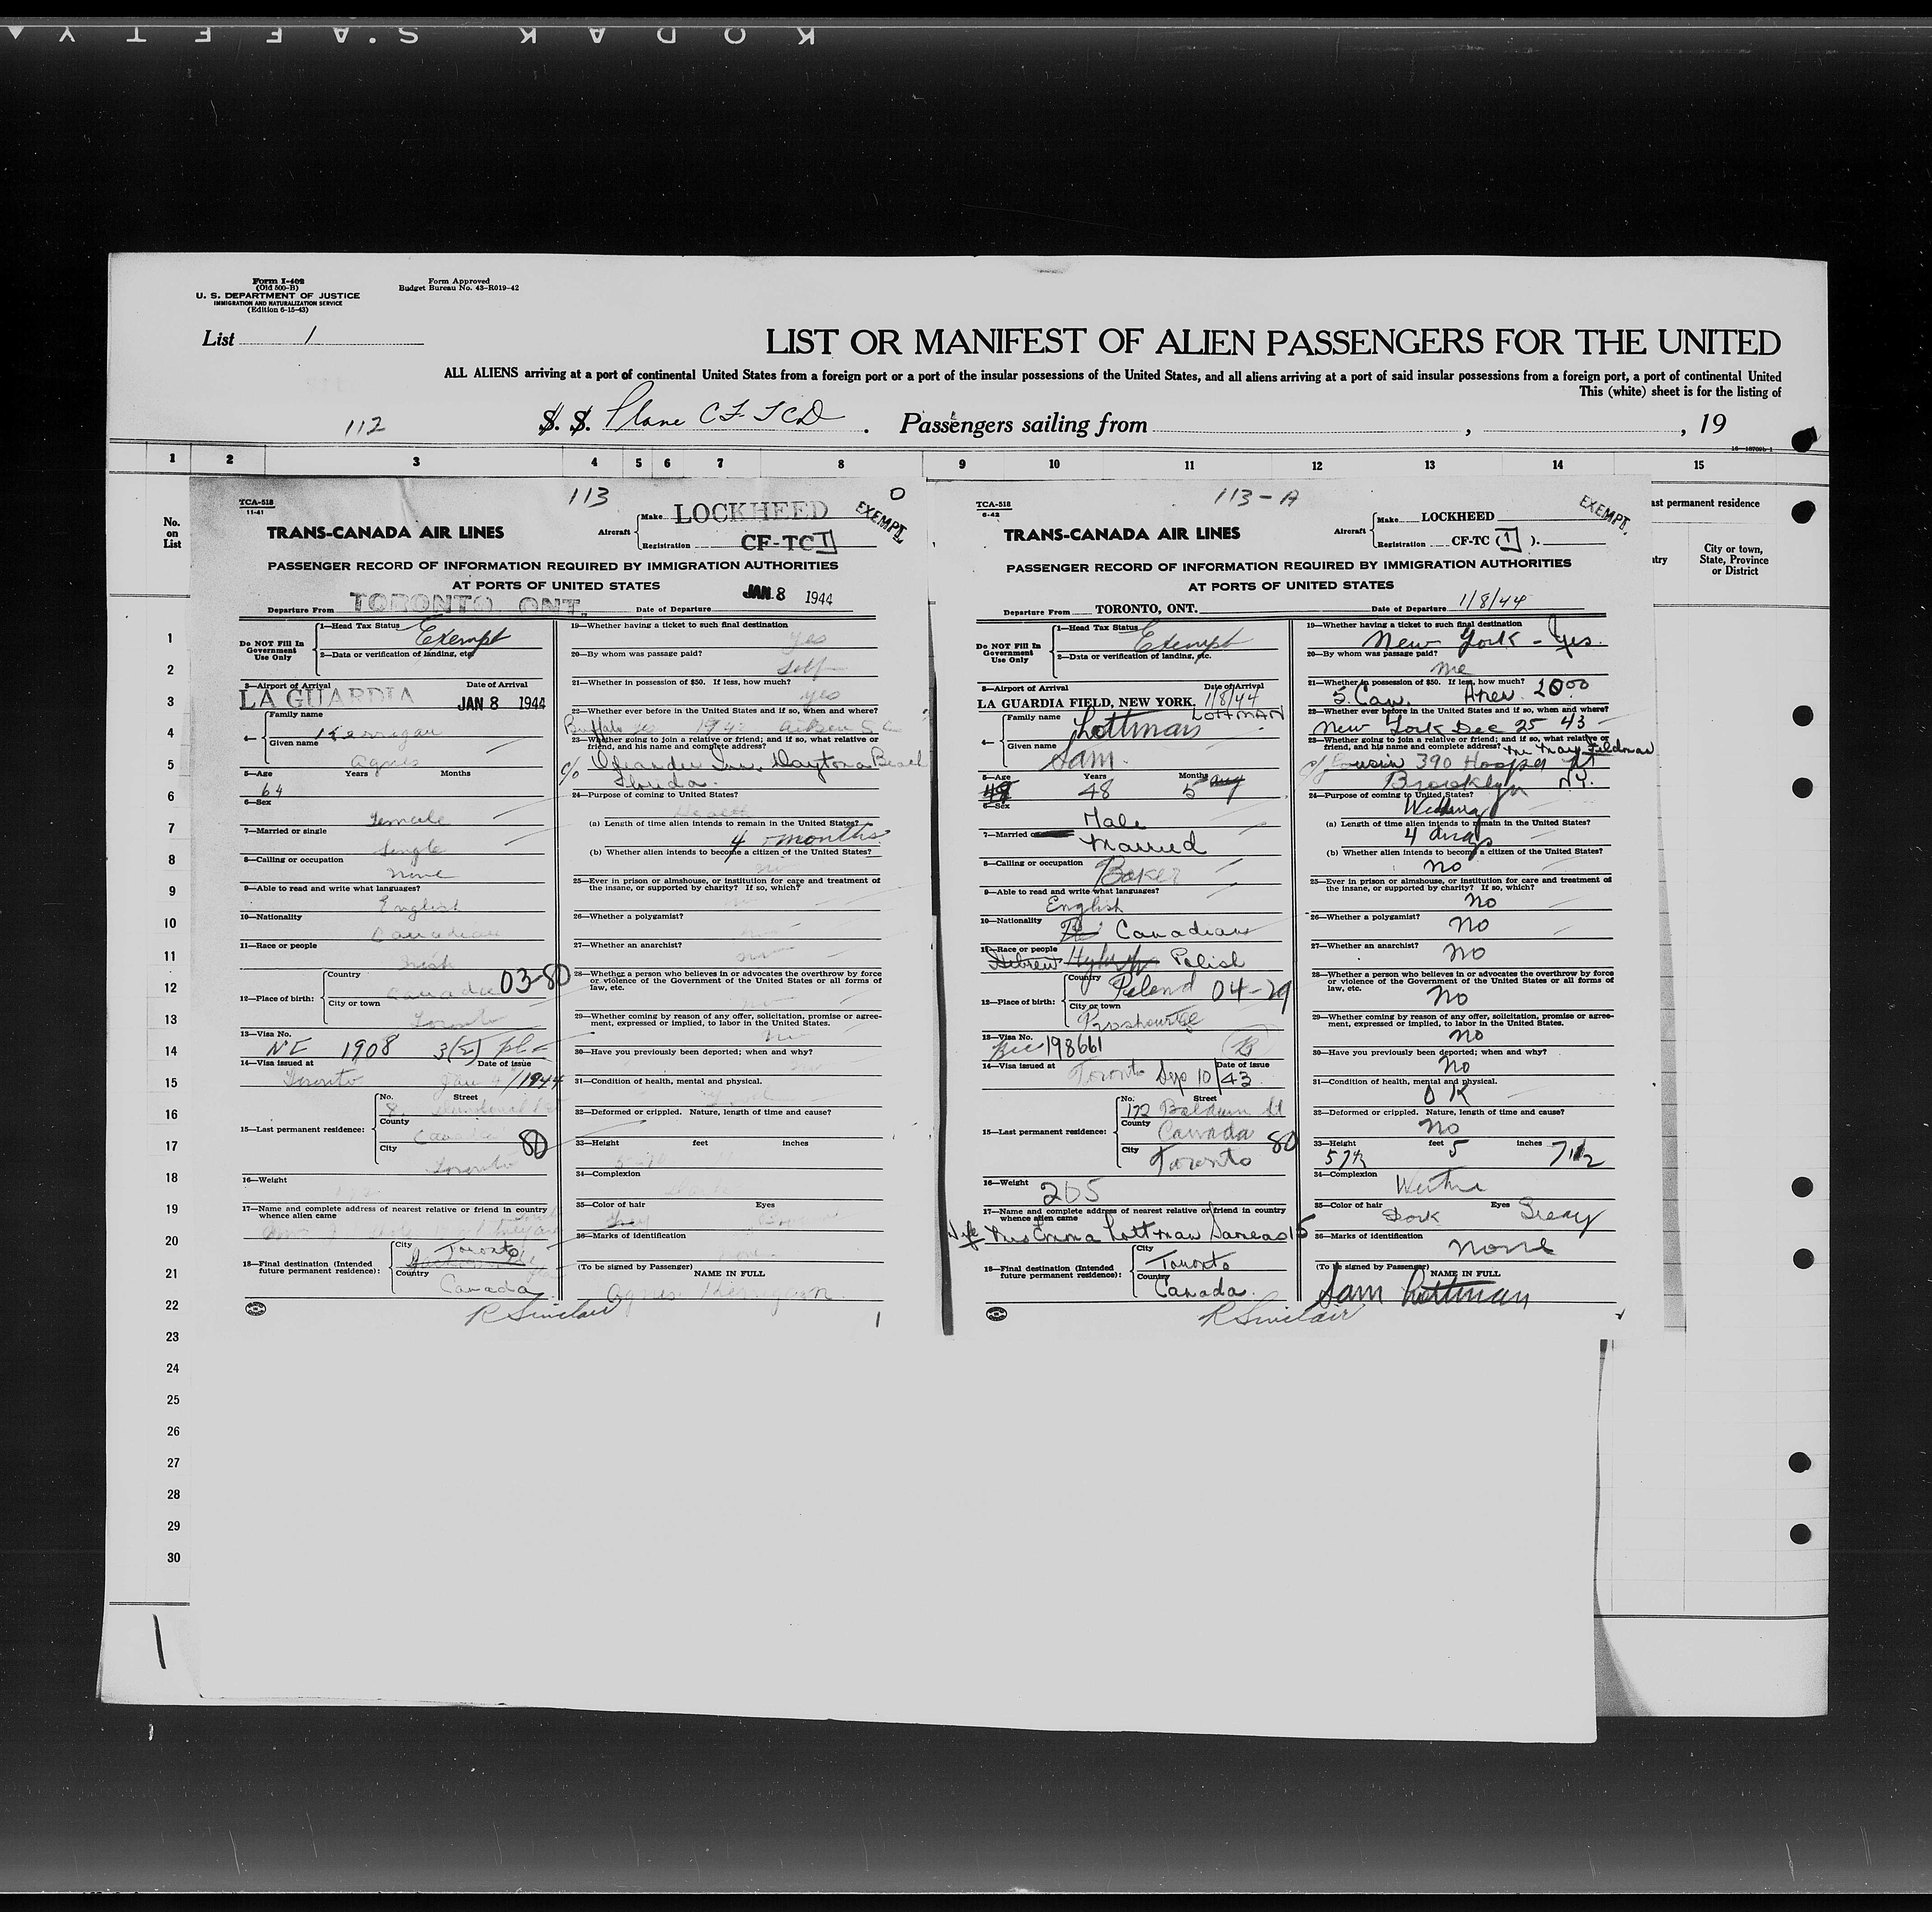 KODAK S'AFETY
Form I-402
(Old 500-B)
U. S. DEPARTMENT OF JUSTICE
IMMIGRATION AND NATURALIZATION SERVICE
(Edition 6-15-43)
Form Approved
Budget Bureau No. 43-R019-42
List 1
LIST OR MANIFEST OF ALIEN PASSENGERS FOR THE UNITED
ALL ALIENS arriving at a port of continental United States from a foreign port or a port of the insular possessions of the United States, and all aliens arriving at a port of said insular possessions from a foreign port, a port of continental United
This (white) sheet is for the listing of
112 S. S. Plane CF-TCD . Passengers sailing from , , 19
1 2 3 4 5 6 7 8 9 10 11 12 13 14 15
No.
on
List
ast permanent residence
try
City or town,
State, Province
or District
1
2
3
4
5
6
7
8
9
10
11
12
13
14
15
16
17
18
19
20
21
22
23
24
25
26
27
28
29
30
TCA-518
11-41
113
EXEMPT.
TRANS-CANADA AIR LINES
Aircraft Make LOCKHEED
Registration CF-TC I
PASSENGER RECORD OF INFORMATION REQUIRED BY IMMIGRATION AUTHORITIES
AT PORTS OF UNITED STATES
Departure From TORONTO, ONT. Date of Departure JAN 8 1944
Do NOT Fill In
Government
Use Only
1—Head Tax Status Exempt
2—Data or verification of landing, etc.
3—Airport of Arrival Date of Arrival
LA GUARDIA JAN 8 1944
4— Family name Kerrigan
Given name Agnes
5—Age Years Months
64
6—Sex
Female
7—Married or single
Single
8—Calling or occupation
None
9—Able to read and write what languages?
English
10—Nationality
Canadian
11—Race or people
Irish
12—Place of birth: Country Canada 03-80
City or town
Toronto
13—Visa No.
NE 1908 3(2)
14—Visa issued at Date of issue
Toronto Jan 4/1944
15—Last permanent residence: No. Street
8
County
Canada 80
City
Toronto
16—Weight
17—Name and complete address of nearest relative or friend in country
whence alien came
18—Final destination (Intended
future permanent residence): City Toronto
Country
Canada
R Sinclair
19—Whether having a ticket to such final destination
Yes
20—By whom was passage paid?
Self
21—Whether in possession of $50. If less, how much?
Yes
22—Whether ever before in the United States and if so, when and where?
Buffalo
23—Whether going to join a relative or friend; and if so, what relative or
friend, and his name and complete address?
c/o Daytona Beach
Florida
24—Purpose of coming to United States?
Health
(a) Length of time alien intends to remain in the United States?
4 months
(b) Whether alien intends to become a citizen of the United States?
no
25—Ever in prison or almshouse, or institution for care and treatment of
the insane, or supported by charity? If so, which?
26—Whether a polygamist?
27—Whether an anarchist?
28—Whether a person who believes in or advocates the overthrow by force
or violence of the Government of the United States or all forms of
law, etc.
29—Whether coming by reason of any offer, solicitation, promise or agree-
ment, expressed or implied, to labor in the United States.
30—Have you previously been deported; when and why?
31—Condition of health, mental and physical.
32—Deformed or crippled. Nature, length of time and cause?
33—Height feet inches
34—Complexion
35—Color of hair Eyes
Grey
36—Marks of identification
none
(To be signed by Passenger) NAME IN FULL
Agnes Kerrigan
TCA-518
6-42
113-A
EXEMPT.
TRANS-CANADA AIR LINES
Aircraft Make LOCKHEED
Registration CF-TC ( I ).
PASSENGER RECORD OF INFORMATION REQUIRED BY IMMIGRATION AUTHORITIES
AT PORTS OF UNITED STATES
Departure From TORONTO, ONT. Date of Departure 1/8/44
Do NOT Fill In
Government
Use Only
1—Head Tax Status Exempt
2—Data or verification of landing, etc.
3—Airport of Arrival Date of Arrival
LA GUARDIA FIELD, NEW YORK. 1/8/44
4— Family name Lottman LOTTMAN
Given name Sam
5—Age Years Months
48 5
6—Sex
Male
7—Married or
Married
8—Calling or occupation
Baker
9—Able to read and write what languages?
English
10—Nationality
Canadian
11—Race or people
Hebrew Polish
12—Place of birth: Country Poland 04-29
City or town
13—Visa No.
198661 B
14—Visa issued at Date of issue
Toronto Sep 10/43
15—Last permanent residence: No. Street
172 Baldwin St
County
Canada 80
City
Toronto
16—Weight
205
17—Name and complete address of nearest relative or friend in country
whence alien came
Wife Mrs Emma Lottman Same as 15
18—Final destination (Intended
future permanent residence): City
Toronto
Country
Canada
R Sinclair
19—Whether having a ticket to such final destination
New York - Yes.
20—By whom was passage paid?
me
21—Whether in possession of $50. If less, how much?
5. Can. Amer. 20.00
22—Whether ever before in the United States and if so, when and where?
New York Dec 25 43
23—Whether going to join a relative or friend; and if so, what relative or
friend, and his name and complete address? Feldman
c/o Cousin 390 Hooper St
Brooklyn N.Y.
24—Purpose of coming to United States?
Wedding
(a) Length of time alien intends to remain in the United States?
4 days
(b) Whether alien intends to become a citizen of the United States?
no
25—Ever in prison or almshouse, or institution for care and treatment of
the insane, or supported by charity? If so, which?
no
26—Whether a polygamist?
no
27—Whether an anarchist?
no
28—Whether a person who believes in or advocates the overthrow by force
or violence of the Government of the United States or all forms of
law, etc.
no
29—Whether coming by reason of any offer, solicitation, promise or agree-
ment, expressed or implied, to labor in the United States.
no
30—Have you previously been deported; when and why?
no
31—Condition of health, mental and physical.
O K
32—Deformed or crippled. Nature, length of time and cause?
no
33—Height feet 5 inches 7 1/2
34—Complexion
35—Color of hair Eyes
Dark Greay
36—Marks of identification
none
(To be signed by Passenger) NAME IN FULL
Sam Lottman